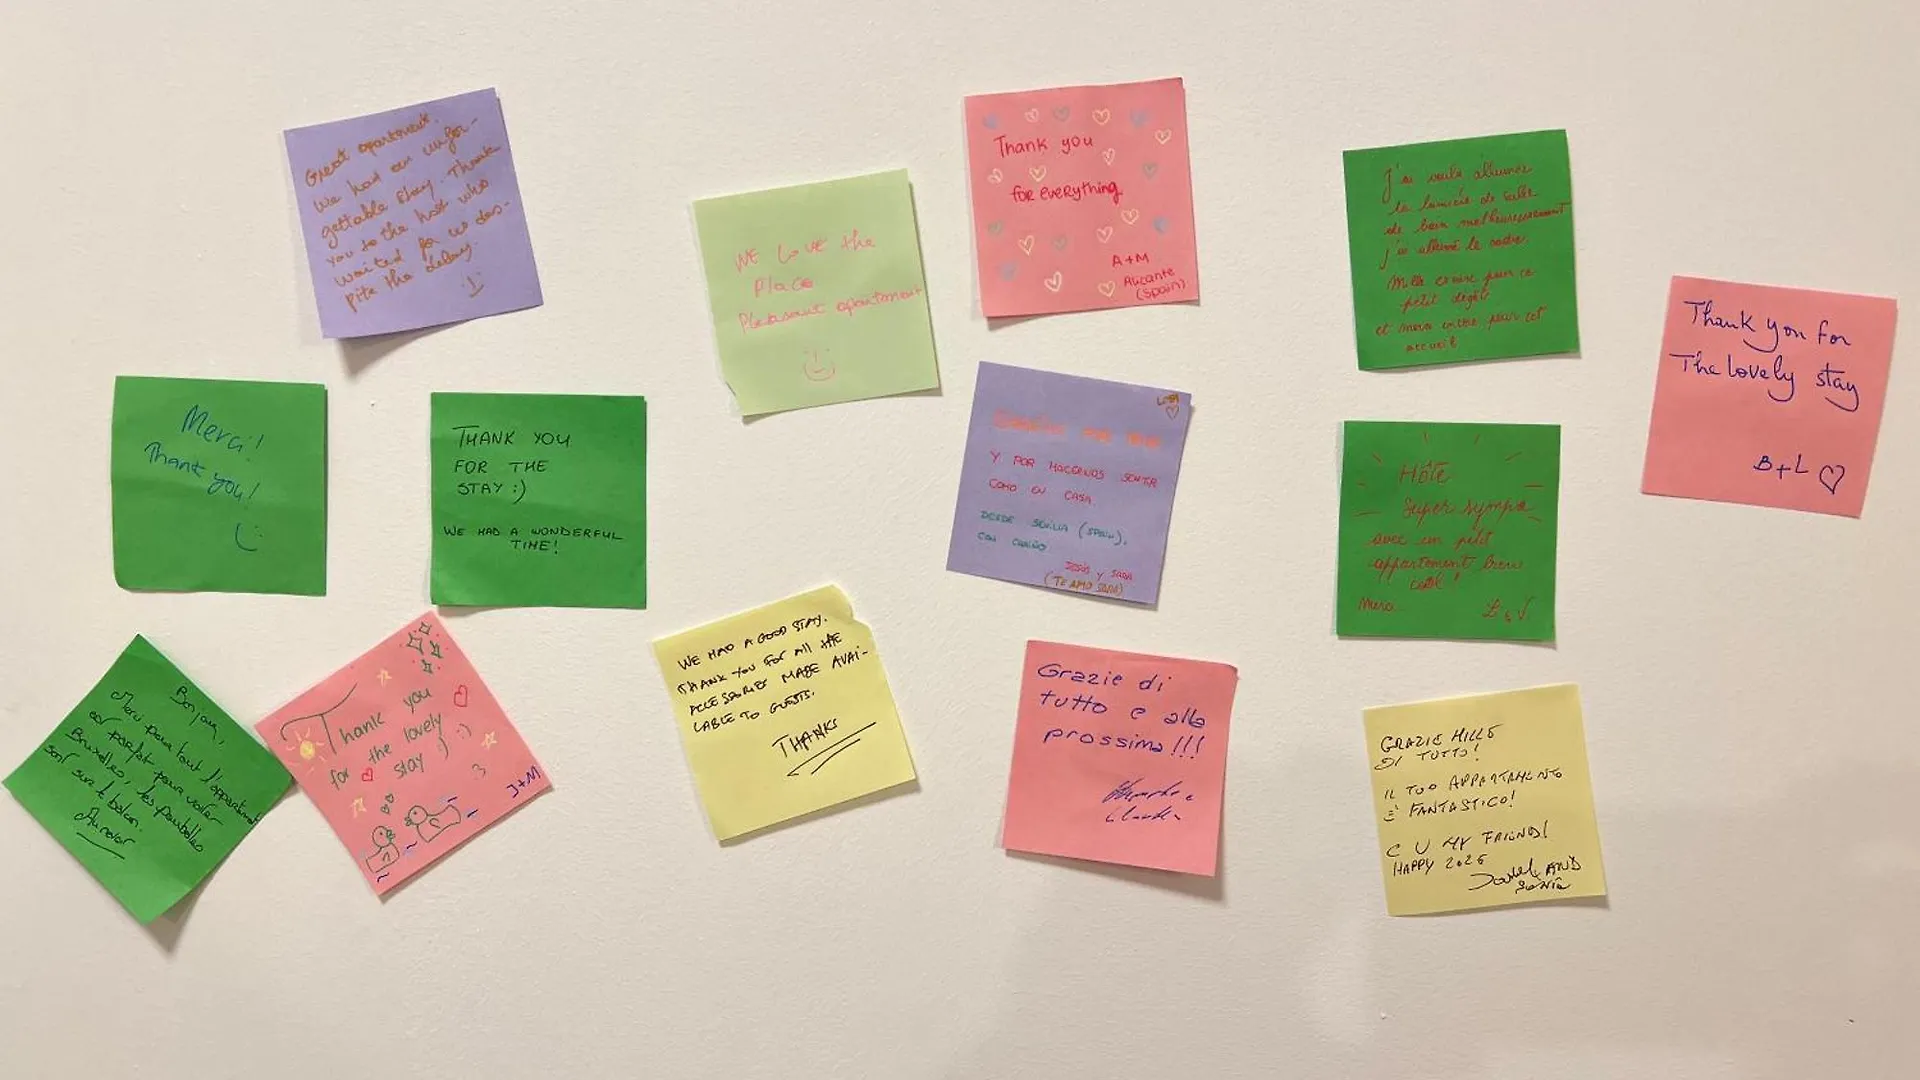 Great apartment.
We had an unfor-
gettable stay. Thank
you to the host who
waited for us des-
pite the delay.
WE LOVE the
PLACE
Pleasant apartment
Thank you
for everything
A+M
Alicante
(Spain)
J'ai voulu allumer
la lumière de salle
de bain malheureusement
j'ai allumé le radio.
Mille excuse pour ce
petit dégât
et merci encore pour cet
accueil
Thank you for
The lovely stay
B+L
Merci!
Thank you!
THANK YOU
FOR THE
STAY :)
WE HAD A WONDERFUL
TIME!
Y POR HACERNOS SENTIR
COMO EN CASA.
DESDE SEVILLA (SPAIN),
CON CARIÑO
JESÚS Y SARA
(TE AMO SARA)
Hôte
Super sympa
avec un petit
appartement bien
Merci
Bonjour,
Merci pour tout l'appartement
est parfait pour visiter
Bruxelles, les poubelles
sont sur le balcon.
Thank you
for the lovely
stay :) :)
J+M
WE HAD A GOOD STAY.
THANK YOU FOR ALL THE
ACCESSORIES MADE AVAI-
LABLE TO GUESTS.
THANKS
Grazie di
tutto e alla
prossima!!!
GRAZIE MILLE
DI TUTTO!
IL TUO APPARTAMENTO
È FANTASTICO!
C U MY FRIEND!
HAPPY 2025
AND